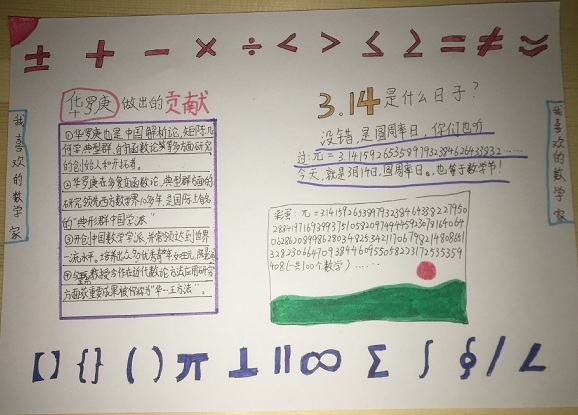 ± + - × ÷ < > ≤ ≥ = ≠ ≈
我喜欢的数学家
华罗庚做出的贡献
①华罗庚也是中国解析论，矩阵几
何学，典型群，自守函数论等多方面研究
的创始人和开拓者。
②华罗庚在多复变函数论，典型群方面的
研究领先西方数学界10多年，是国际上有名
的“典型群中国学派”
③开创中国数学学派，并带领达到世界
一流水平。培养出众多优秀青年，如王元，陈景润
④与王元教授合作在近代数论方法应用研究
方面获重要成果被称为“华—王方法”。
3.14是什么日子？
没错，是圆周率日，你们也听
过：π=3.14159265358979323846264338 32……
今天，就是3月14日，圆周率日。也等于数学节！
我喜欢的数学家
彩蛋：π=3.141592653897932384646338227950
（一共100个数字）……
[ ] { } ( ) π ⊥ ∥ ∞ Σ ∫ ∮ / ∠